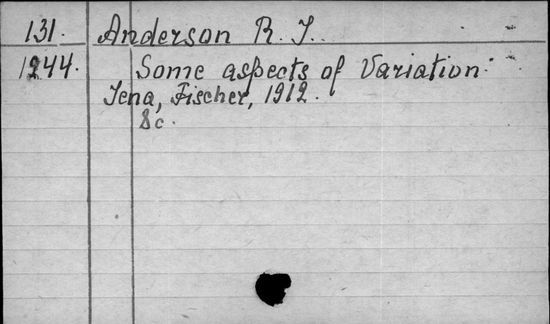 131. Anderson R. J.
1244. Some aspects of Variation.
Jena, Fischer, 1912.
8c.